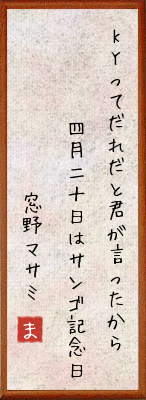 KYってだれだと君が言ったから
四月二十日はサンゴ記念日
窓野マサミ
ま